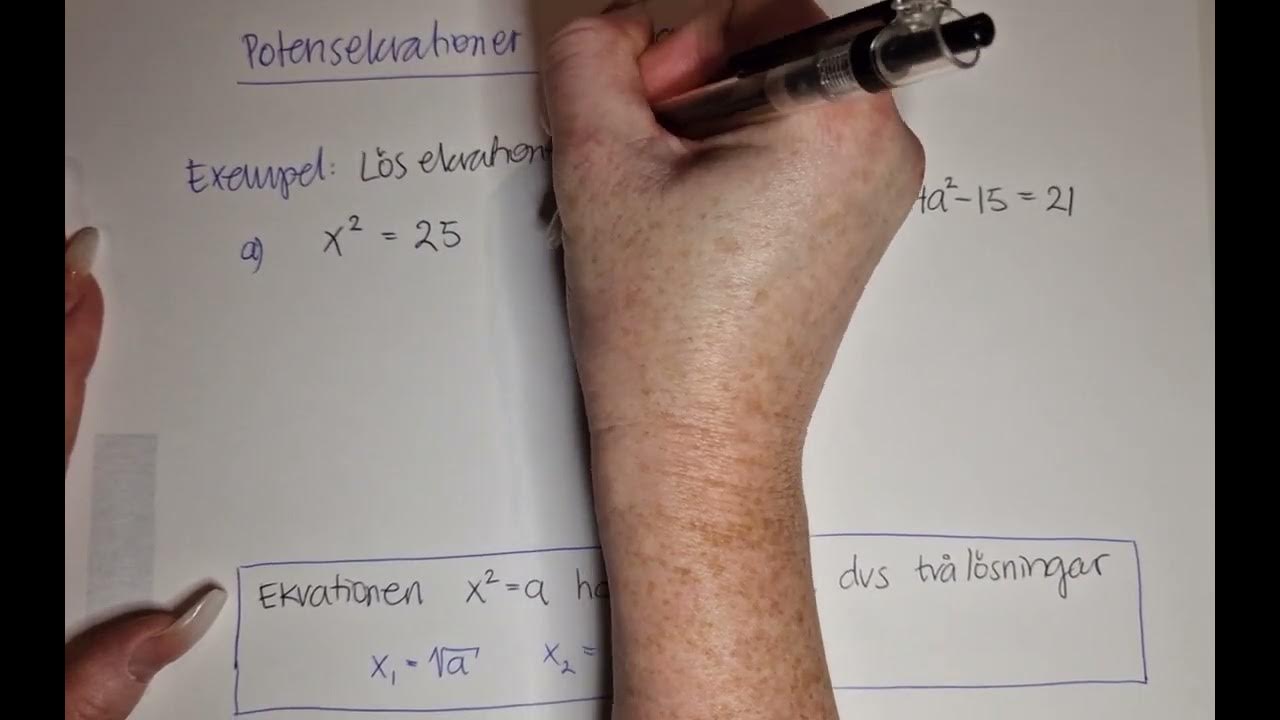 Potensekvationer
Exempel: Lös ekvation
a) x² = 25
a² - 15 = 21
Ekvationen x² = a
dvs två lösningar
x₁ = √a x₂ =